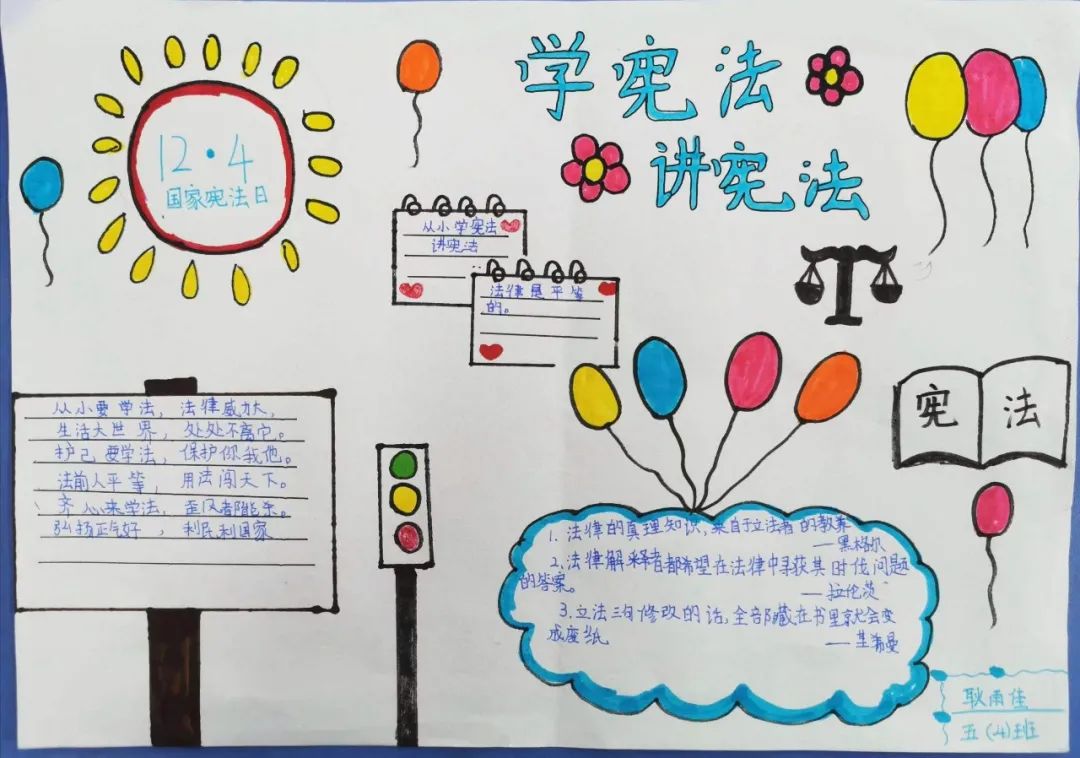 学宪法
讲宪法
12·4
国家宪法日
从小学宪法
讲宪法
法律是平等
的。
宪法
从小要学法，法律威力大，
生活大世界，处处不离它。
护己要学法，保护你我他。
法前人平等，用法闯天下。
齐心来学法，歪风都能杀。
弘扬正气好，利民利国家
1.法律的真理知识，来自于立法者的教养
——黑格尔
2.法律解释者都希望在法律中寻获其时代问题
的答案。
——拉伦茨
3.立法三句修改的话，全部藏在书里就会变
成废纸
——基希曼
耿雨佳
五(4)班